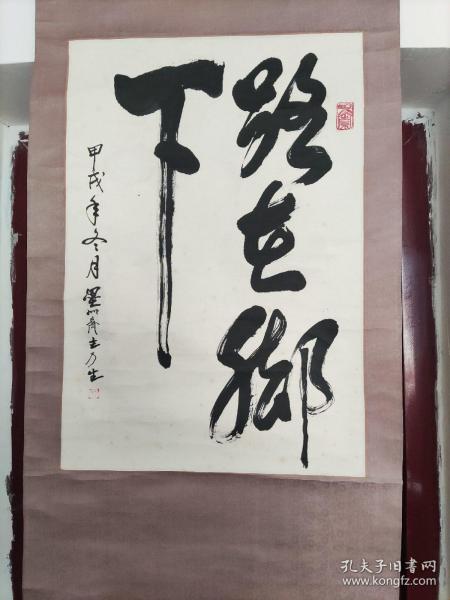 路在脚
下
甲戌年冬月墨斋主万生
孔夫子旧书网
www.kongfz.com